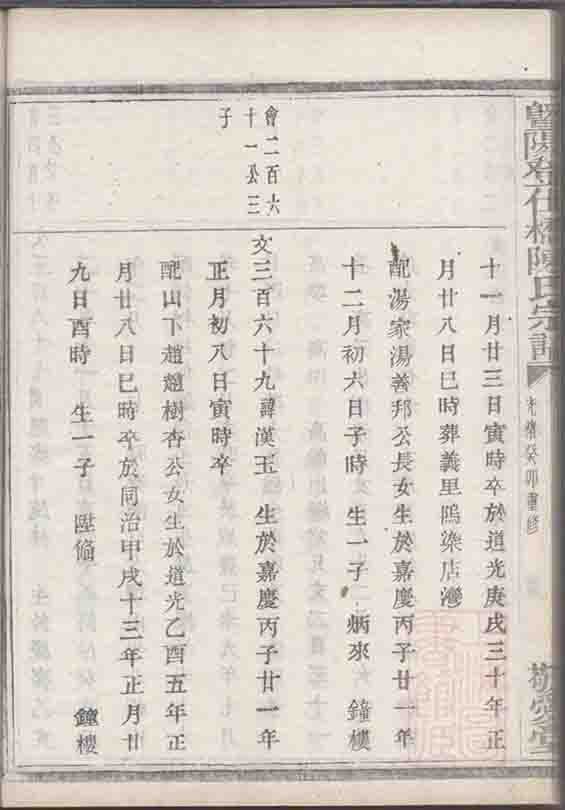 暨陽登仕橋陳氏宗譜
光緒癸卯重修
敬愛堂
十一月廿三日寅時卒於道光庚戌三十年正
月廿八日巳時葬義里塢染店灣
配湯家湯善邦公長女生於嘉慶丙子廿一年
十二月初六日子時 生一子 炳來 鐘樓
會二百六
十一公三
子
文三百六十九諱漢玉 生於嘉慶丙子廿一年
正月初八日寅時卒
配山下趙趙樹杏公女生於道光乙酉五年正
月廿八日巳時卒於同治甲戌十三年正月廿
九日酉時 生一子 鐘樓